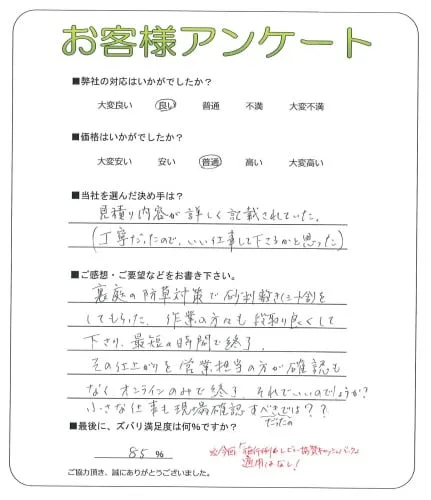 お客様アンケート
■弊社の対応はいかがでしたか？
大変良い 良い 普通 不満 大変不満
■価格はいかがでしたか？
大変安い 安い 普通 高い 大変高い
■当社を選んだ決め手は？
見積り内容が詳しく記載されていた。
(丁寧だったので、いい仕事して下さるかと思った)
■ご感想・ご要望などをお書き下さい。
裏庭の防草対策で砂利敷き(シート含)を
してもらった。作業の方々も段取り良くして
下さり、最短の時間で終了。
その仕上がりを営業担当の方が確認も
なくオンラインのみで終了。それでいいのでしょうか？
小さな仕事も現場確認すべきでは？？
だったの
■最後に、ズバリ満足度は何％ですか？
85 %
※今回
適用はなし！
ご協力頂き、誠にありがとうございました。